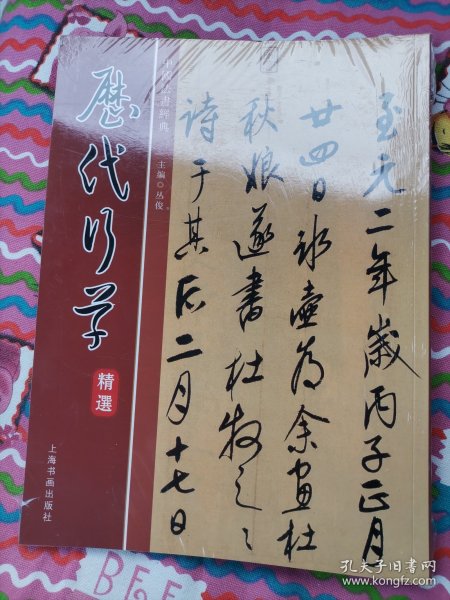 歷代行草
精選
中國法書經典
主编◎丛俊
上海书画出版社
至元二年歲丙子正月
廿四日冰壺為余畫杜
秋娘遂書杜牧之之
詩于其后二月十七日
BEE
孔夫子旧书网
www.kongfz.com